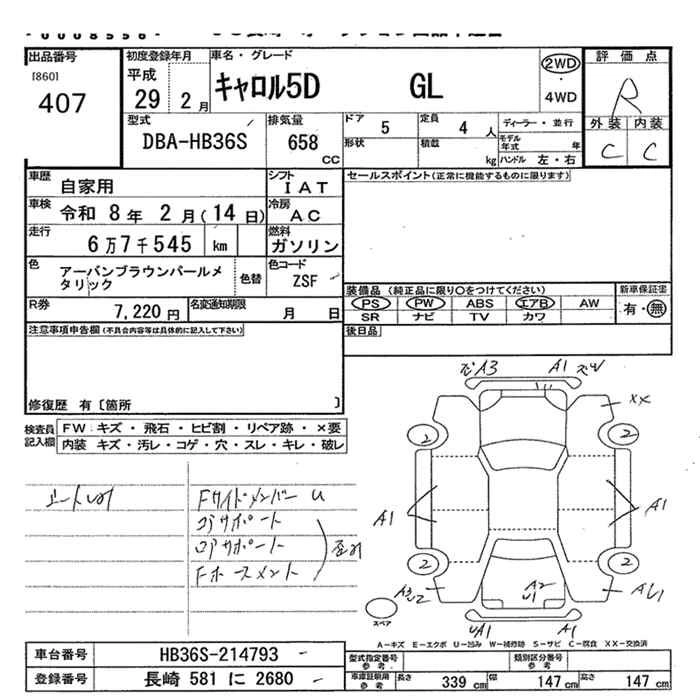 出品番号
[860]
407
初度登録年月
平成
29 2月
車名・グレード
キャロル5D GL
2WD
・
4WD
評価点
R
外装 内装
C C
型式
DBA-HB36S
排気量
658
CC
ドア
5
定員
4 人
形状
積載
kg
ディーラー・並行
モデル
年式 年
ハンドル 左・右
車歴
自家用
シフト
IAT
車検
令和 8年 2月(14日)
冷房
AC
走行
6万7千545 km
燃料
ガソリン
色
アーバンブラウンパールメ
タリック
色替
色コード
ZSF
R券
7,220円
名変通知期限
月 日
セールスポイント(正常に機能するものに限ります)
装備品(純正品に限り〇をつけてください)
PS PW ABS エアB AW
SR ナビ TV カワ
新車保証書
有・無
後日品
注意事項申告欄(不具合内容等は具体的に記入して下さい)
修復歴 有〔箇所 〕
検査員
記入欄
FW キズ・飛石・ヒビ割・リペア跡・×要
内装 キズ・汚レ・コゲ・穴・スレ・キレ・破レ
Fサイドメンバー U
コアサポート
ロアサポート
A3 A1
XX
2 2
A1 A1
2 2
A2
U1
UA1 A1
スペア
A－キズ E－エクボ U－凹み W－補修跡 S－サビ C－腐食 XX－交換済
車台番号
HB36S-214793
登録番号
長崎 581 に 2680
型式指定番号
参考
類別区分番号
参考
車庫証明用
参考
長さ 339 cm
幅 147 cm
高さ 147 cm